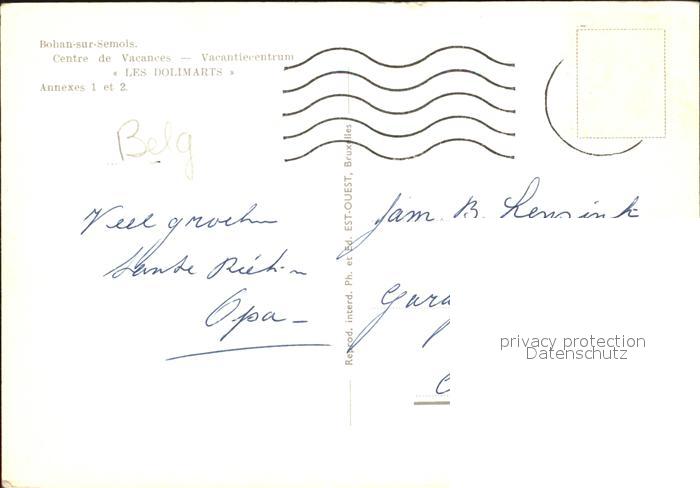 Bohan-sur-Semois.
Centre de Vacances — Vacantiecentrum
« LES DOLIMARTS »
Annexes 1 et 2.
Belg
Veel groeten
Tante Riet en
Opa -
Reprod. interd. Ph. et Ed. EST-OUEST, Bruxelles
Fam. B. Lensink
privacy protection
Datenschutz